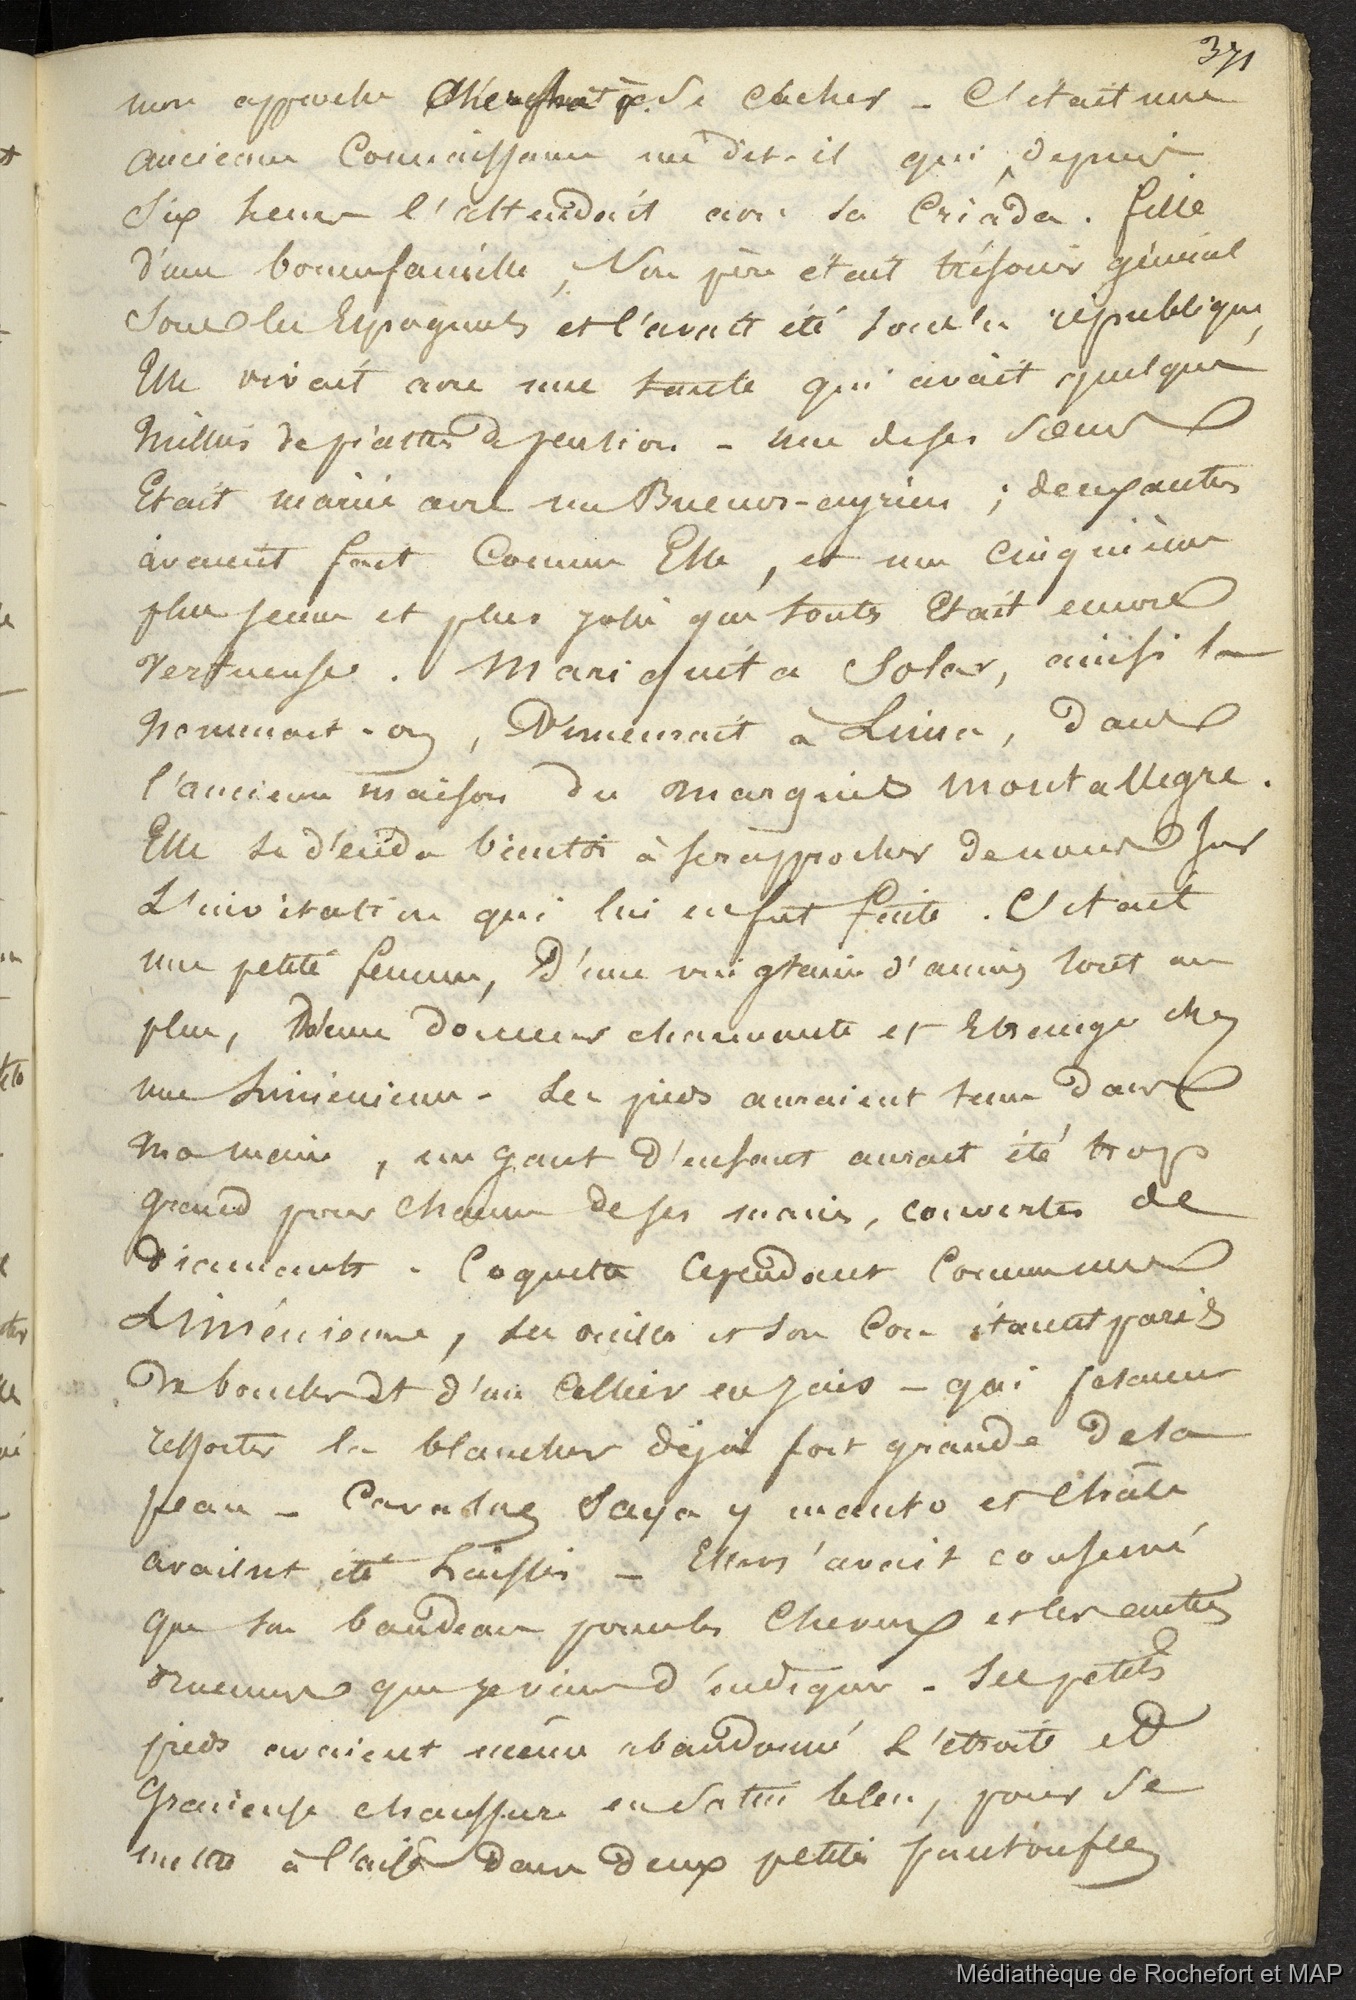 371
mon approche cherchait à se cacher - C'était une
ancienne Connaissance me dit-il qui depuis
Six heures l'attendait avec sa Criada. fille
d'une bonne famille, Son père était trésorier général
Sous les Espagnols et l'avait été sous la république,
Elle vivait avec une tante qui avait quelques
Milliers de piastres de pension - une de ses Sœurs
Etait mariée avec un Buenos-ayrien ; deux autres
avaient fait Comme Elle, et une Cinquième
plus jeune et plus jolie que toutes Etait encore
vertueuse. Mariquita Solar, ainsi la
Nommait-on, Demeurait à Lima, dans
l'ancienne maison du Marquis Montallegre.
Elle se décida bientôt à se rapprocher de nous sur
L'invitation qui lui en fut faite. C'était
une petite femme, D'une vingtaine d'années tout au
plus, D'une douceur charmante et Etrange chez
une Liménienne - Ses pieds auraient tenu dans
Ma main, un gant d'enfant aurait été trop
grand pour chacune de ses mains, couvertes de
Diamants - Coquette Cependant Comme une
Liménienne, ses oreilles et son Cou étaient parés
De boucles et d'un Collier en Jais - qui faisaient
ressortir la blancheur déjà fort grande de la
peau - Saya y manto et Châle
avaient été laissés - Elle n'avait conservé
que son bandeau pour les Cheveux et les autres
ornemens que je viens d'indiquer - Ses petits
pieds avaient même abandonné L'étroite et
Gracieuse chaussure en Satin bleu, pour se
mettre à l'aise dans deux petites pantoufles
Médiathèque de Rochefort et MAP